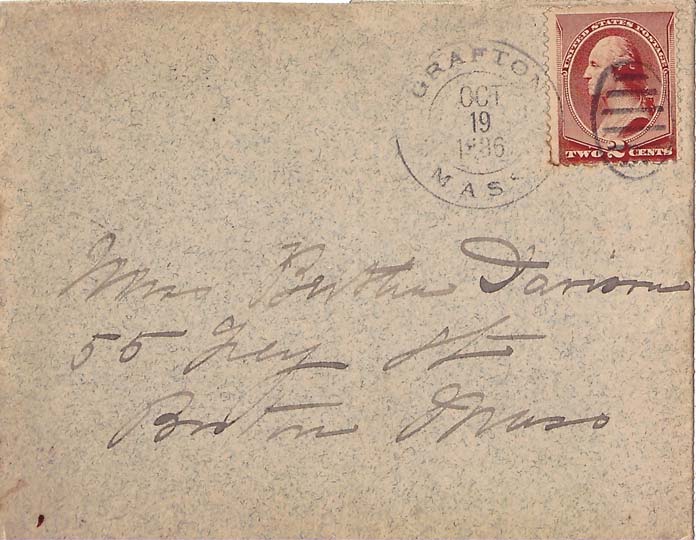 UNITED STATES POSTAGE
TWO 2 CENTS
GRAFTON
OCT
19
1886
MASS
Miss Bertha Davison
55 Grey St
Boston Mass